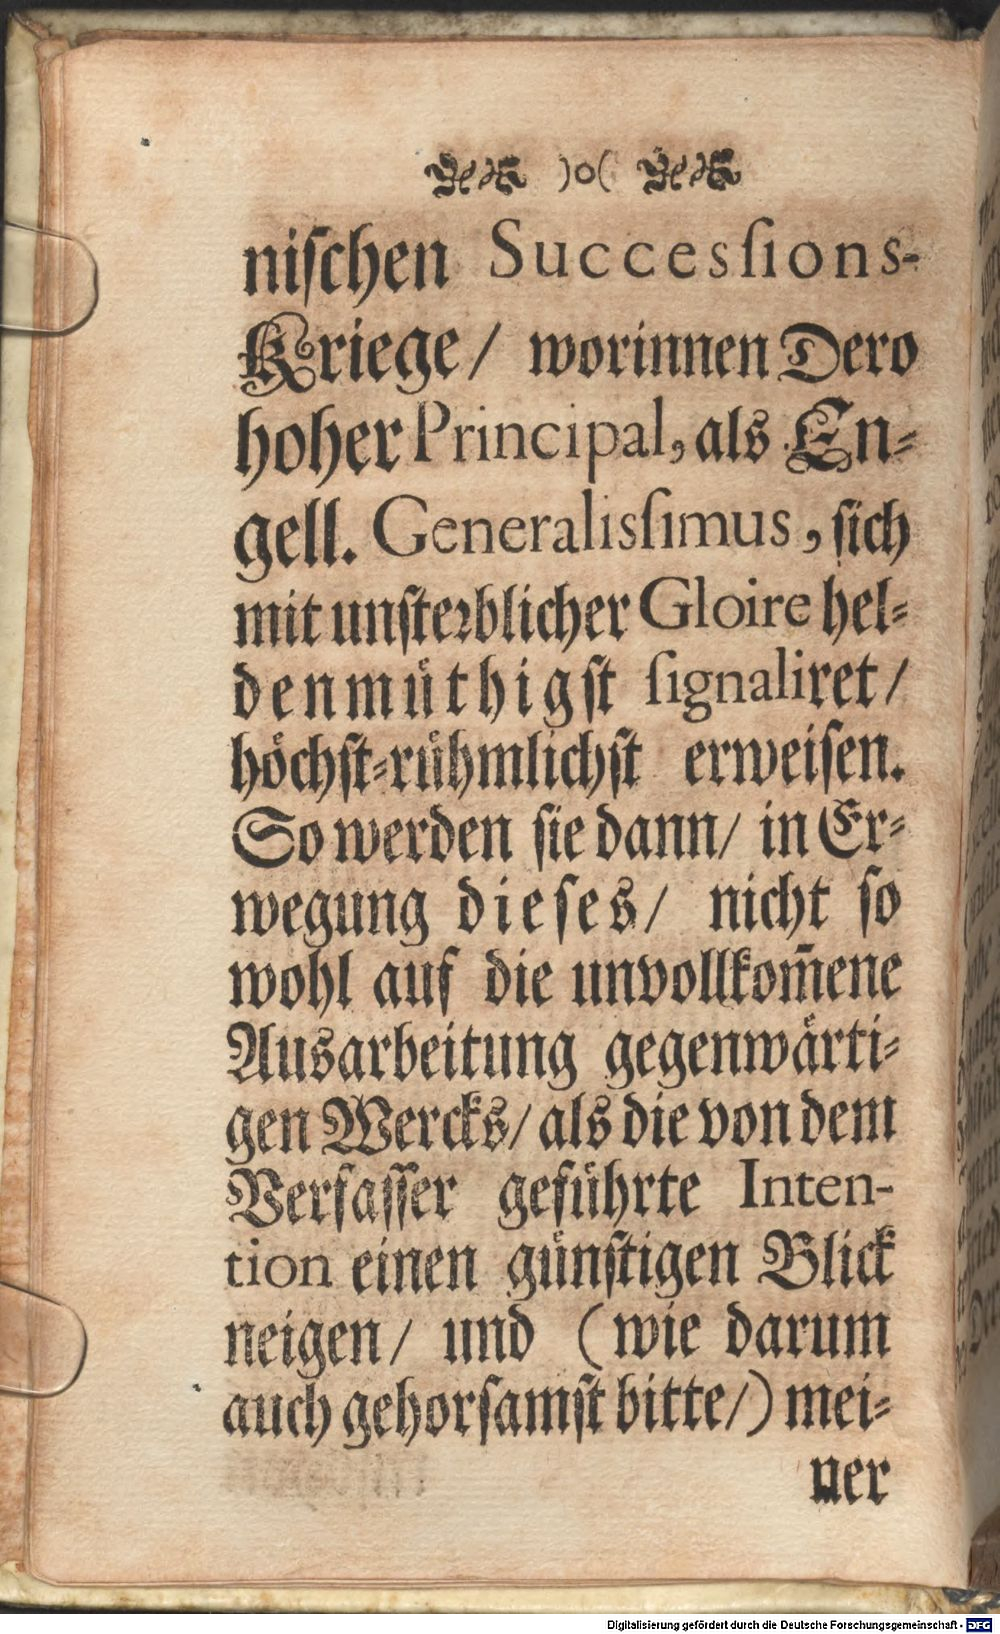 )o(
niſchen Succesſions-
Kriege/ worinnen Dero
hoher Principal, als En-
gell. Generalisſimus, ſich
mit unſterblicher Gloire hel-
denmuͤthigſt ſignaliret/
hoͤchſt-ruͤhmlichſt erweiſen.
So werden ſie dann/ in Er-
wegung dieſes/ nicht ſo
wohl auf die unvollkom̄ene
Ausarbeitung gegenwaͤrti-
gen Wercks/ als die von dem
Verfaſſer gefuͤhrte Inten-
tion einen guͤnſtigen Blick
neigen/ und (wie darum
auch gehorſamſt bitte/) mei-
ner
Digitalisierung gefördert durch die Deutsche Forschungsgemeinschaft - DFG